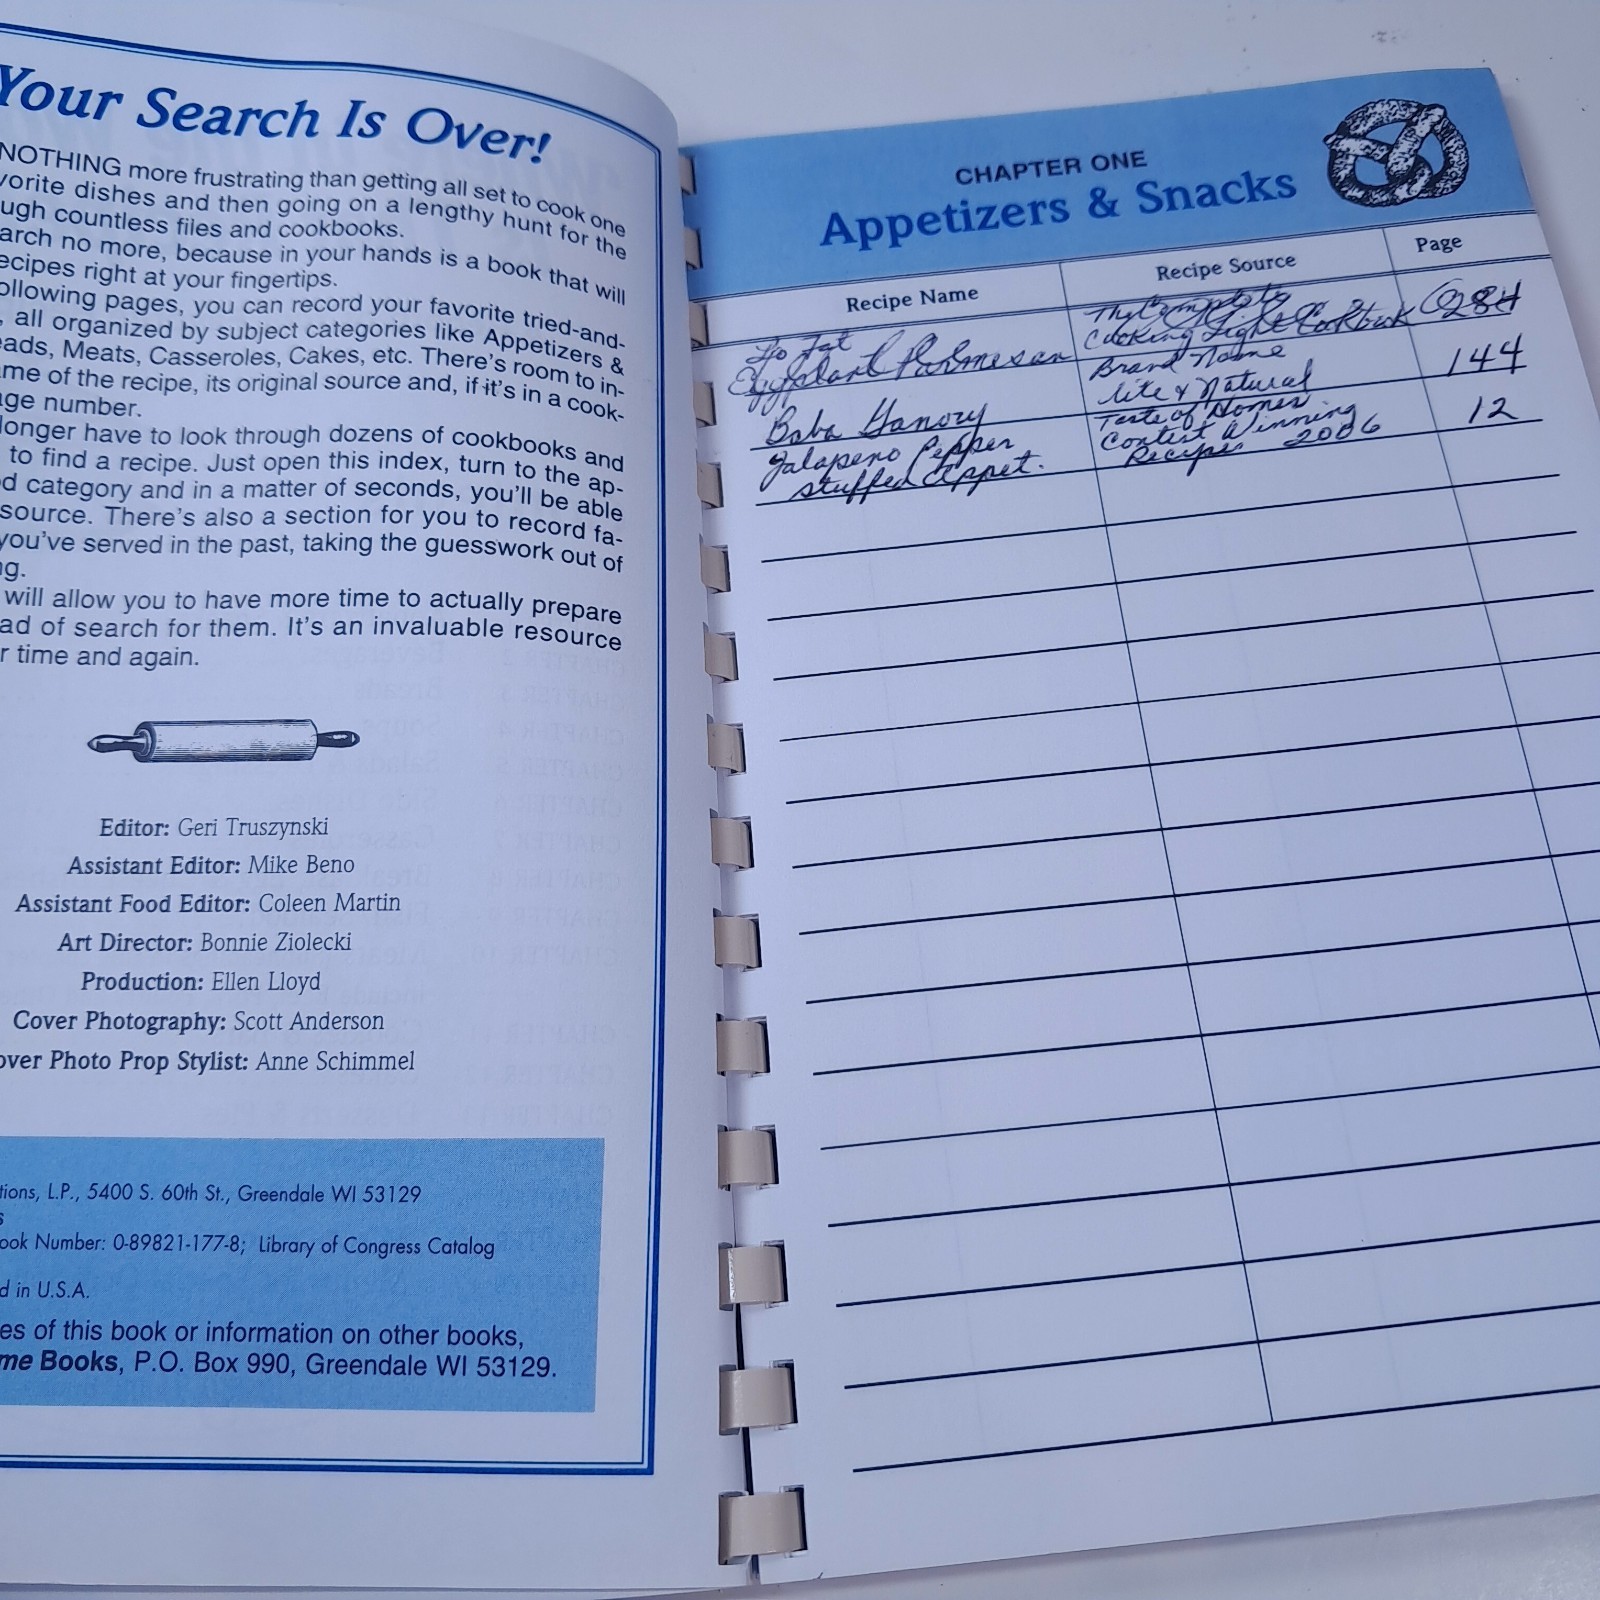 Your Search Is Over!
NOTHING more frustrating than getting all set to cook one
vorite dishes and then going on a lengthy hunt for the
ugh countless files and cookbooks.
arch no more, because in your hands is a book that will
ecipes right at your fingertips.
ollowing pages, you can record your favorite tried-and-
, all organized by subject categories like Appetizers &
eads, Meats, Casseroles, Cakes, etc. There's room to in-
me of the recipe, its original source and, if it's in a cook-
ge number.
longer have to look through dozens of cookbooks and
to find a recipe. Just open this index, turn to the ap-
d category and in a matter of seconds, you'll be able
source. There's also a section for you to record fa-
you've served in the past, taking the guesswork out of
g.
will allow you to have more time to actually prepare
ad of search for them. It's an invaluable resource
r time and again.
Editor: Geri Truszynski
Assistant Editor: Mike Beno
Assistant Food Editor: Coleen Martin
Art Director: Bonnie Ziolecki
Production: Ellen Lloyd
Cover Photography: Scott Anderson
over Photo Prop Stylist: Anne Schimmel
tions, L.P., 5400 S. 60th St., Greendale WI 53129
s
ook Number: 0-89821-177-8; Library of Congress Catalog
d in U.S.A.
es of this book or information on other books,
me Books, P.O. Box 990, Greendale WI 53129.
CHAPTER ONE
Appetizers & Snacks
Recipe Name Recipe Source Page
Lo Fat
Eggplant Parmesan
The Complete
Cooking Light Cookbook 284
Baba Ganory
Brand Name
lite & Natural 144
Jalapeno Pepper
stuffed Appet.
Taste of Homes
Contest Winning
Recipes 2006 12